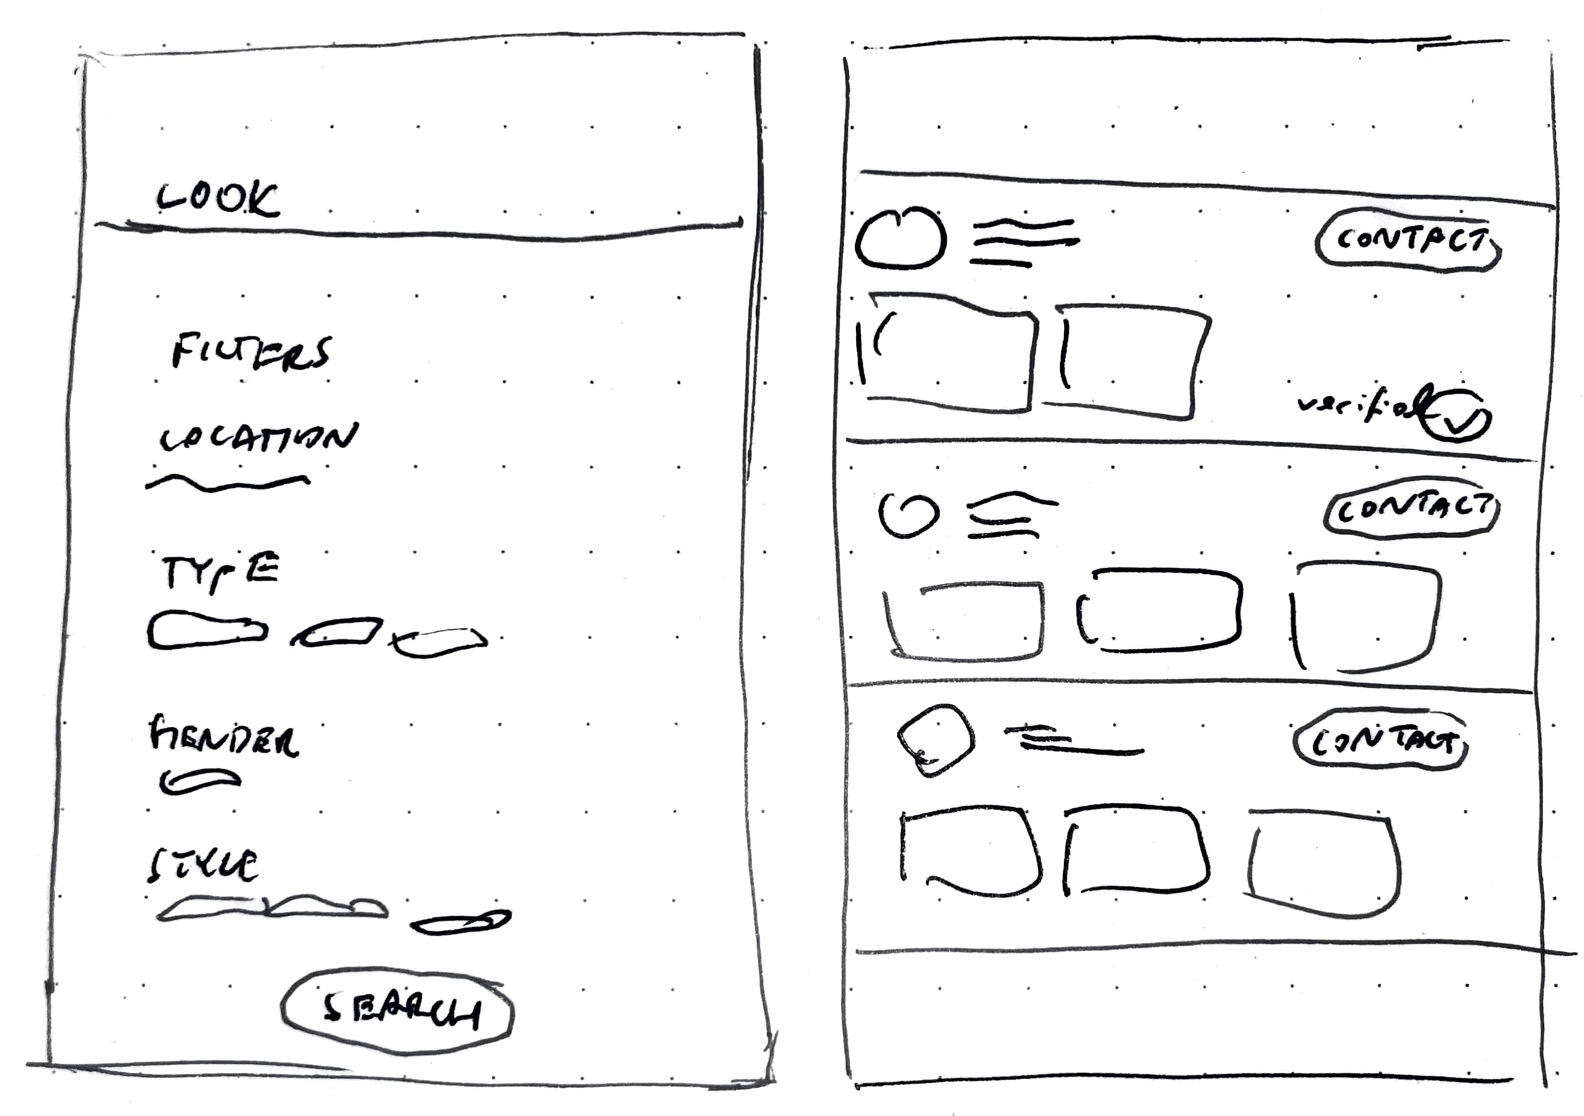 LOOK
FILTERS
LOCATION
TYPE
GENDER
STYLE
SEARCH
CONTACT
verified
CONTACT
CONTACT